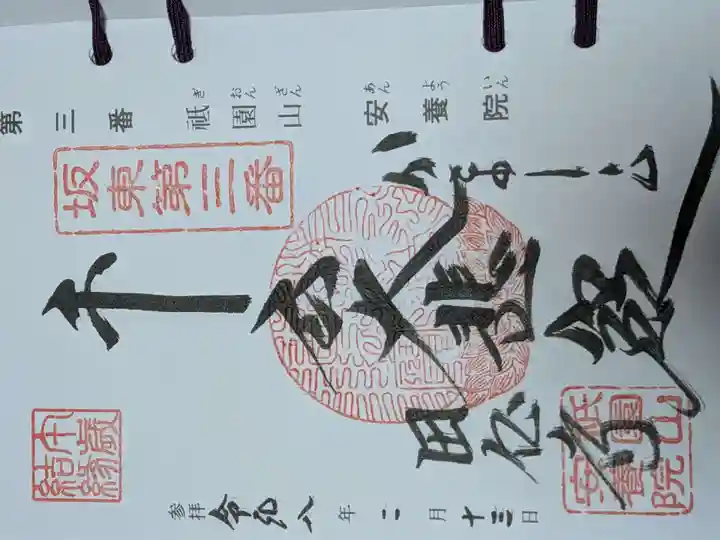 第三番 祇園山 安養院
ぎおんざん あんよういん
坂東第三番
かまくら
大悲
田代
祇園山
安養院
参拝 令和八年二月十三日